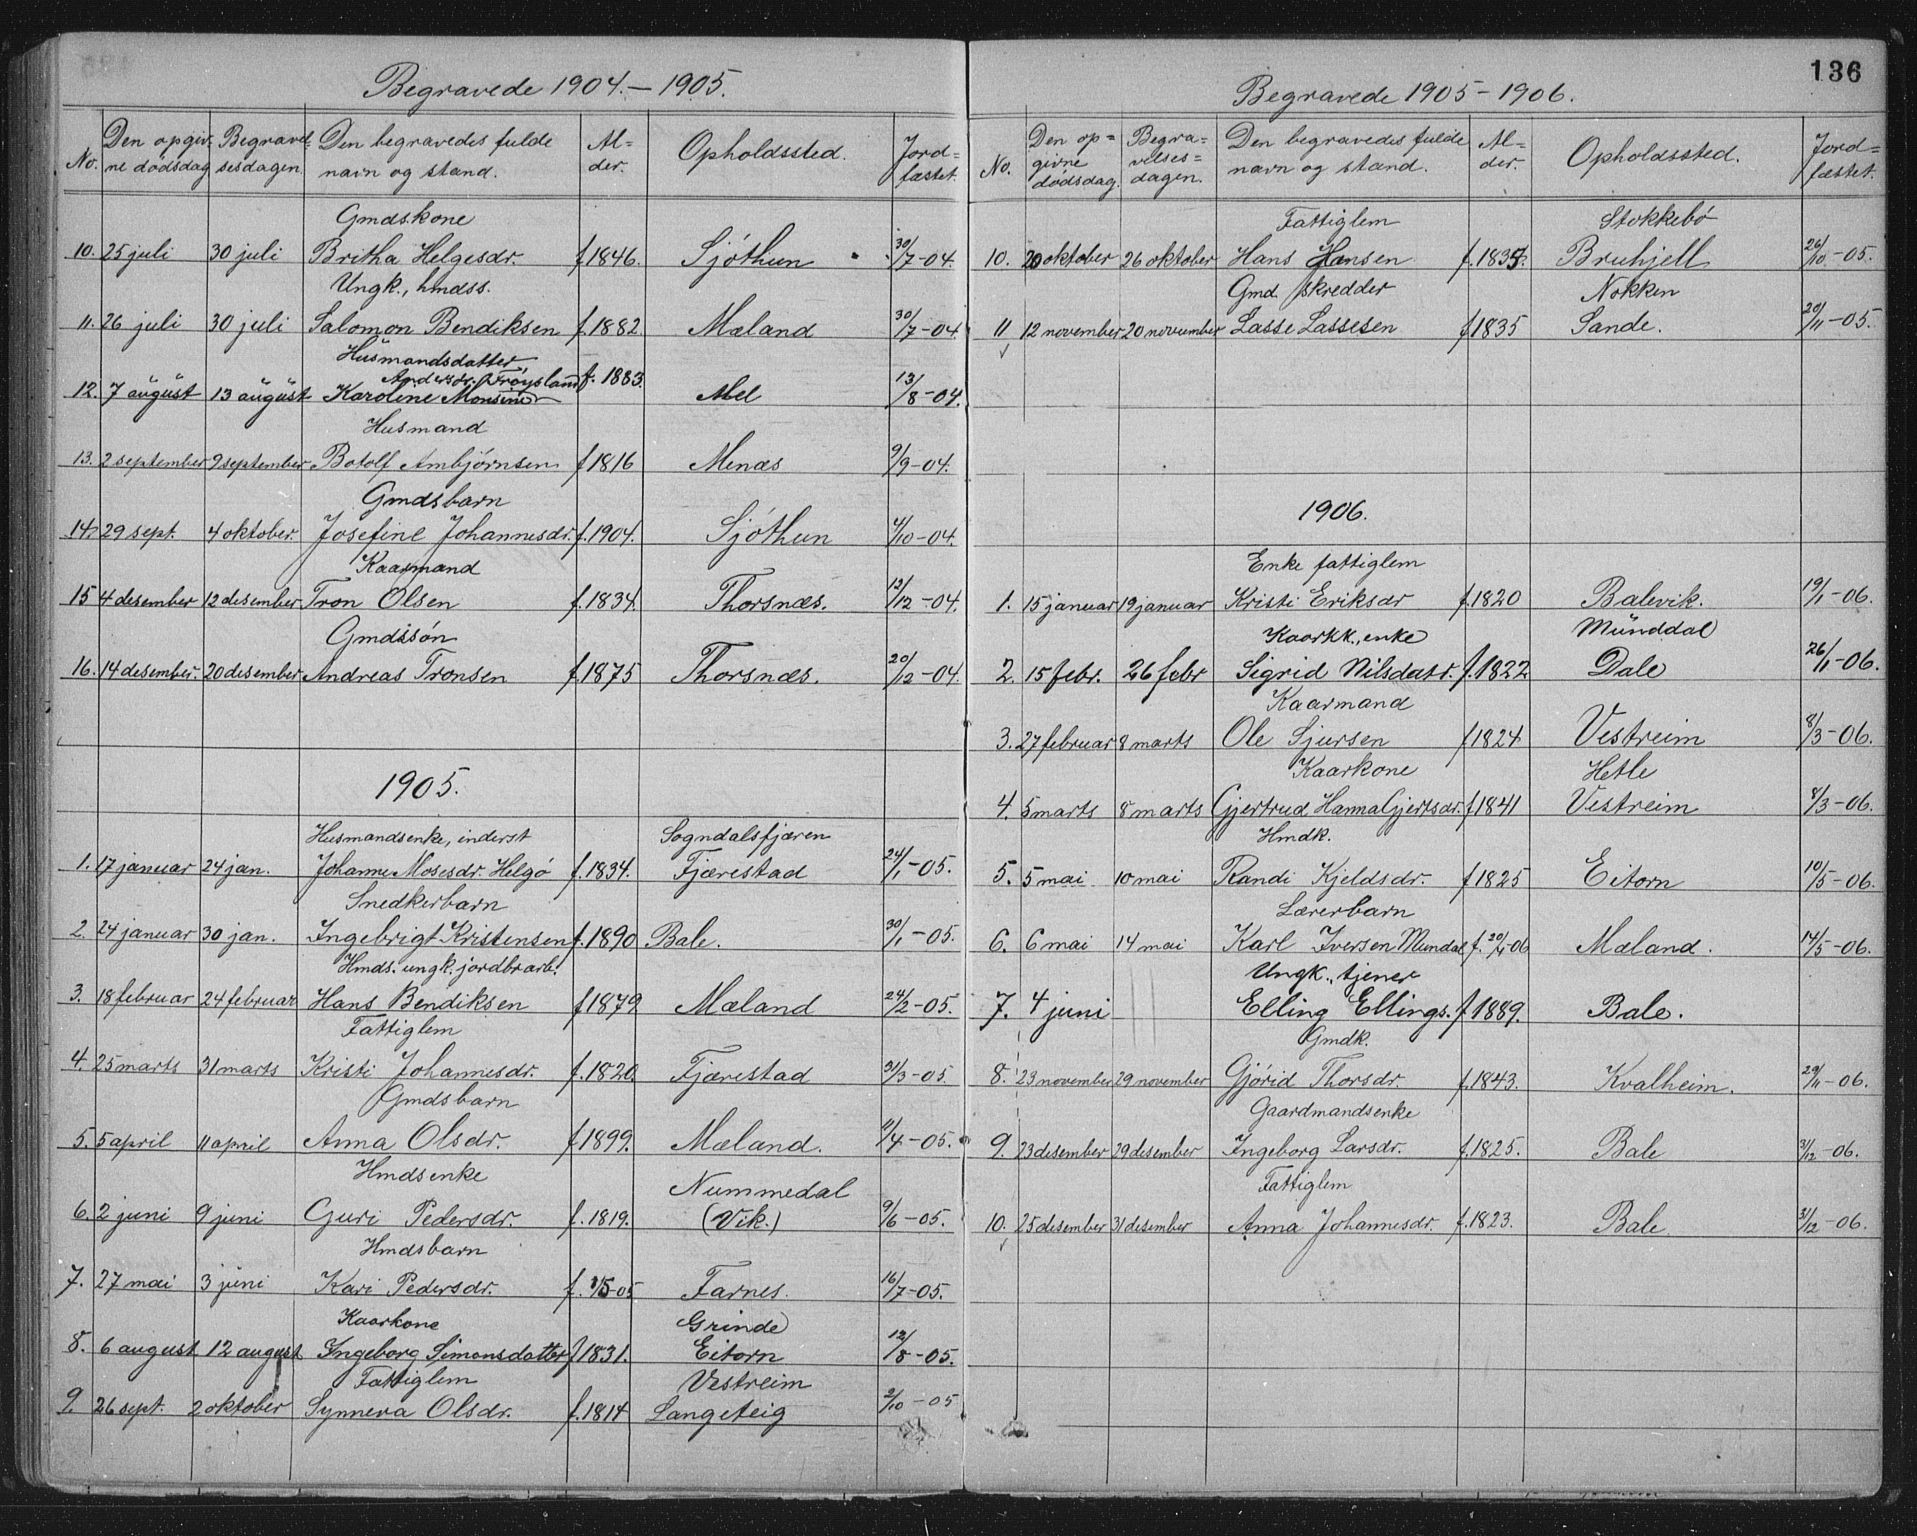 Begravede 1904.—1905.
No. Den opgivne dødsdag Begravelsesdagen. Den begravedes fulde navn og stand. Alder. Opholdssted. Jordfæstet.
Gmdskone
10. 25 juli 30 juli Britha Helgesdr. f. 1846. Sjóthun 30/7-04.
Ungk., hmdss.
11. 26 juli 30 juli Salomon Bendiksen f. 1882. Mæland 30/7-04
Husmandsdatter,
Andersdr. Frøysland f. 1883.
12. 7 august 13 august Karoline Monsine Mel 13/8-04.
Husmand
13. 2 september 9 september Botolf Ambjørnsen f 1816 Menæs 9/9-04.
Gmdsbarn
14. 29 sept. 4 oktober. Josefine Johannesdr. f. 1904. Sjóthun 4/10-04.
Kaarmand
15 4 desember 12 desember Tron Olsen f. 1834. Thorsnæs. 12/12-04.
Gmdssón
16. 14 desember. 20 desember Andreas Tronsen f. 1875 Thorsnæs. 20/12-04
1905.
Husmandsenke, inderst Sogndalsfjæren
1. 17 januar 24 jan. Johanne Mosesdr. Helgó f. 1834. Fjærestad 24/1-05.
Snedkerbarn
2. 24 januar 30 jan. Ingebrigt Kristensen f. 1890 Bale. 30/1-05.
Hmds. ungk. jordbrarb.
3. 18 februar 24 februar Hans Bendiksen f 1879 Mæland 24/2-05.
Fattiglem
4. 25 marts 31 marts Kristi Johannesdr. f. 1820. Fjærestad 31/3-05.
Gmdsbarn
5. 5 april 11 april Anna Olsdr. f 1899. Mæland. 11/4-05.
Hmdsenke Nummedal
6. 2 juni 9 juni Guri Pedersdr. f. 1819. (Vik.) 9/6-05.
Hmdsbarn
7. 27 mai 3 juni Kari Pedersdr. f. 1/5-05 Farnes. 16/7-05.
Kaarkone Grinde
8. 6 august 12 august Ingeborg Simonsdatter f 1831. Eitorn 12/8-05.
Fattiglem Vestreim
9. 26 sept. 2 oktober Synneva Olsdr. f. 1814 Langeteig 2/10-05
136
Begravede 1905-1906.
No. Den opgivne dødsdag. Begravelsesdagen. Den begravedes fulde navn og stand. Alder. Opholdssted. Jordfæstet.
Fattiglem Stokkebø
10. 20 oktober 26 oktober Hans Hansen f. 1835. Bruhjell 26/10-05.
Gmd. skredder Nokken
11 12 november 20 november Lasse Lassesen f 1835 Sande. 20/11-05.
1906.
Enke fattiglem
1. 15 januar 19 januar Kristi Eriksdr f. 1820 Balevik. 19/1-06.
Kaarkk., enke Munddal
2. 15 febr. 26 febr Sigrid Nilsdatr. f. 1822 Dale 26/1-06.
Kaarmand
3. 27 februar 8 marts Ole Sjursen f 1824 Vestreim 8/3-06.
Kaarkone Hetle
4. 5 marts 8 marts Gjertrud Hanna Gjertsdr. f 1841 Vestreim 8/3-06.
Hmdk.
5. 5 mai 10 mai Randi Kjeldsdr. f 1825 Eitorn 10/5-06.
Lærerbarn
6. 6 mai 14 mai Karl Iversen Mundal f. 20/4-06 Mæland. 14/5-06.
Ungk., tjener
7. 4 juni Elling Ellings. f 1889. Bale.
Gmdk.
8. 23 november 29 november Gjørid Thorsdr f. 1843. Kvalheim. 29/11-06.
Gaardmandsenke
9. 23 desember 29 desember Ingeborg Larsdr. f. 1825. Bale 31/12-06.
Fattiglem
10. 25 desember 31 desember Anna Johannesdr. f. 1823. Bale. 31/12-06.